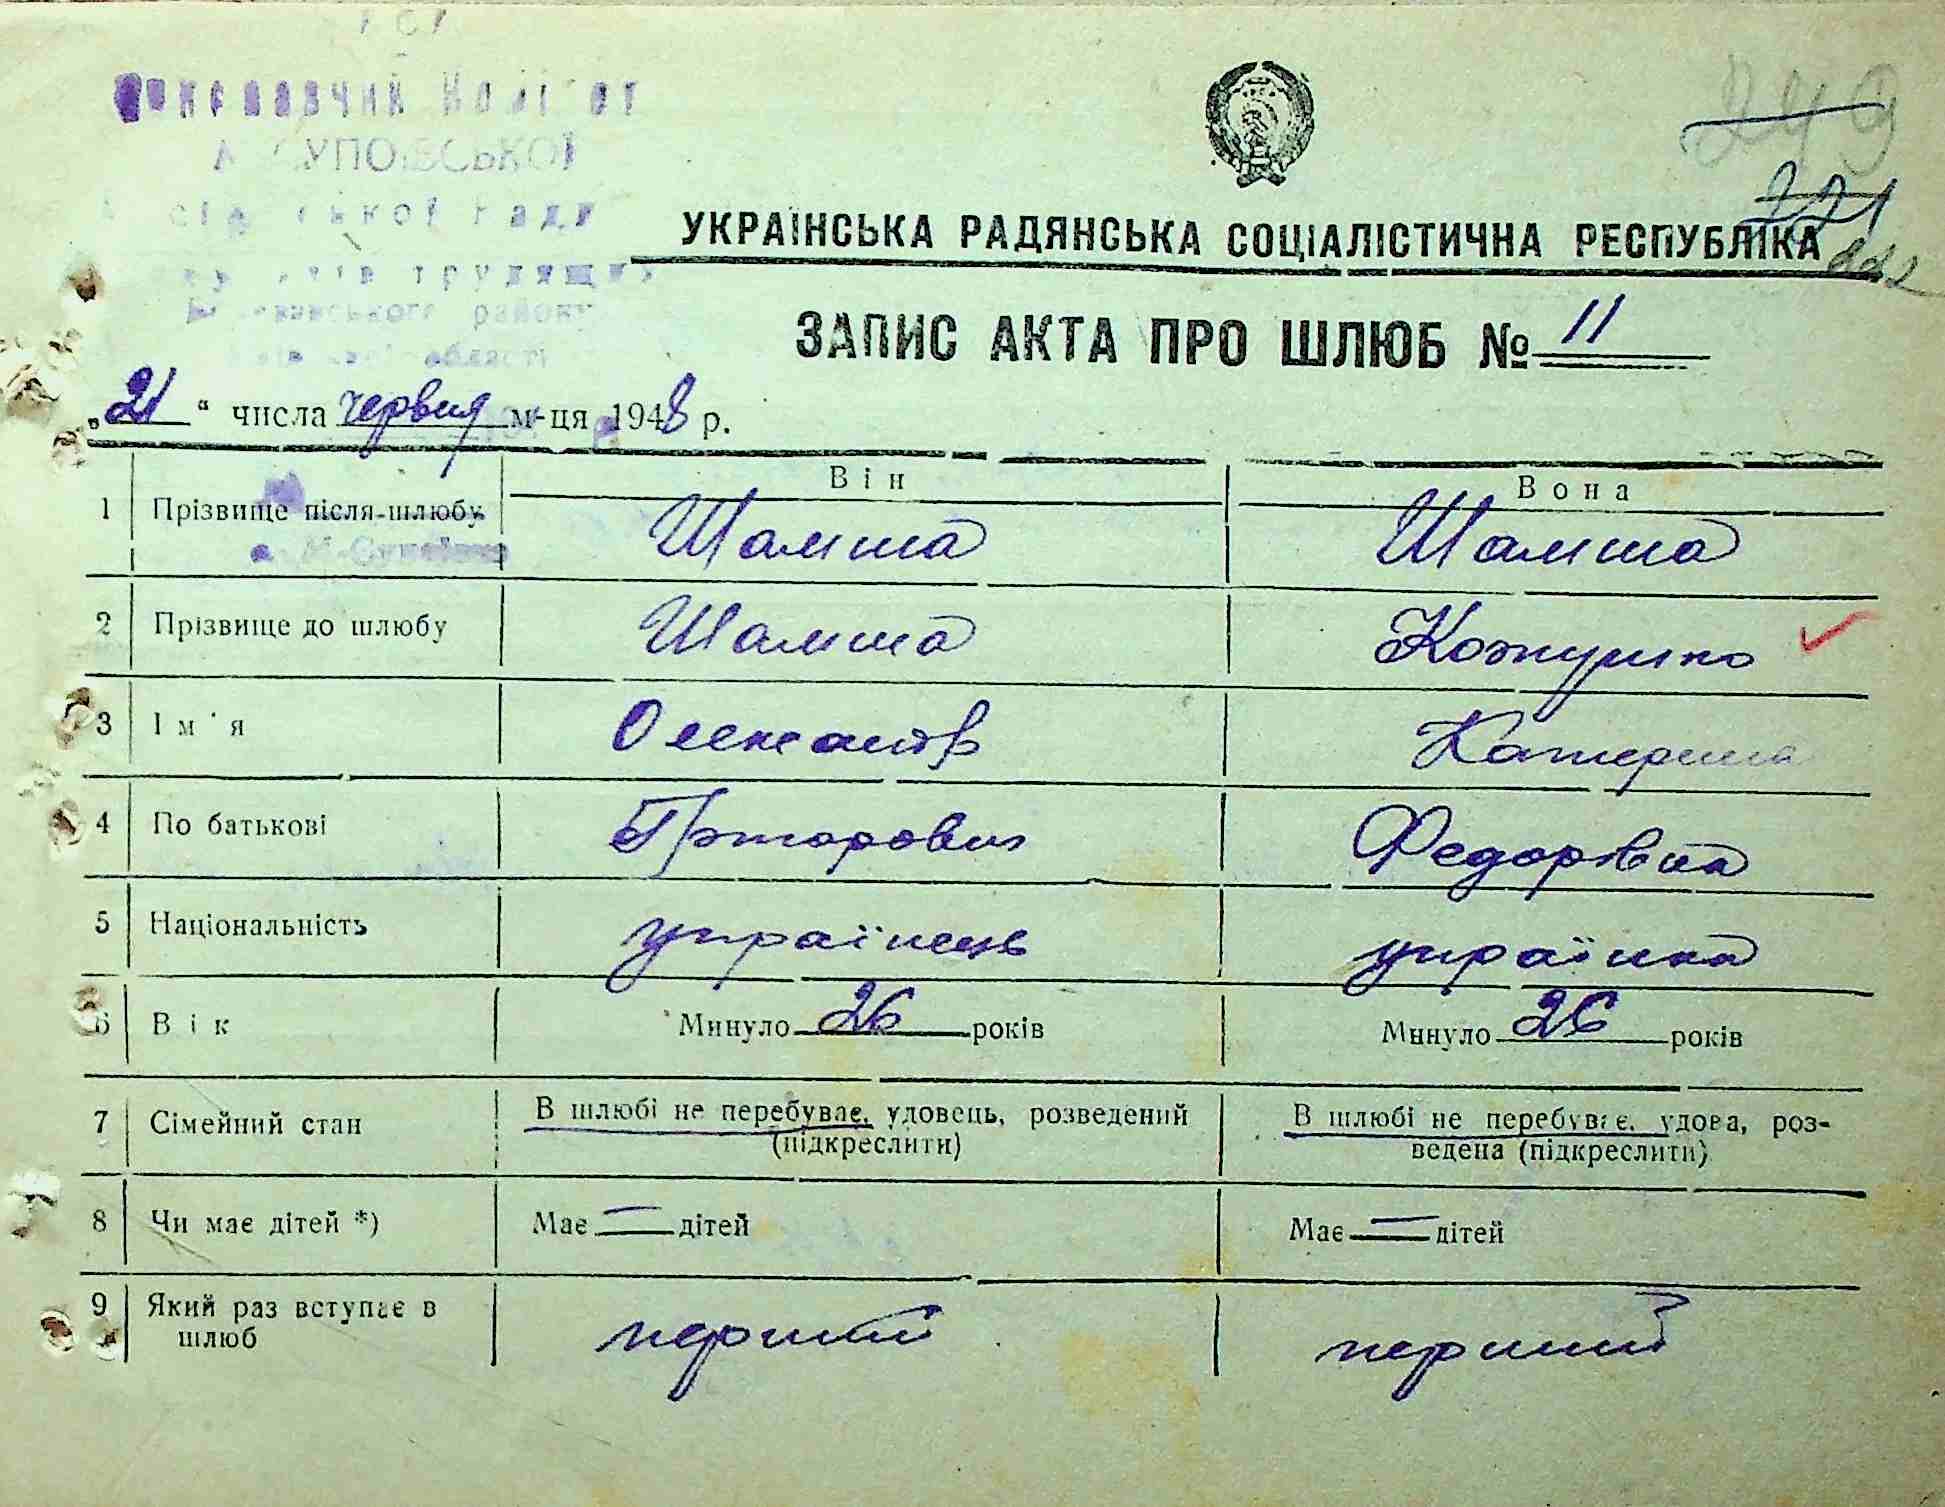 Виконавчий Комітет
СУПОЇВСЬКОЇ
ради
трудящих
району
області
249
221
222
УКРАЇНСЬКА РАДЯНСЬКА СОЦІАЛІСТИЧНА РЕСПУБЛІКА
ЗАПИС АКТА ПРО ШЛЮБ № 11
„21“ числа червня м-ця 1948 р.
Він Вона
1 Прізвище після-шлюбу Шамша Шамша
2 Прізвище до шлюбу Шамша
3 Ім'я Олександр Катерина
4 По батькові Григорович Федорівна
5 Національність українець українка
6 Вік Минуло 26 років Минуло 26 років
7 Сімейний стан В шлюбі не перебуває, удовець, розведений (підкреслити) В шлюбі не перебуває, удова, роз-
ведена (підкреслити)
8 Чи має дітей *) Має — дітей Має — дітей
9 Який раз вступає в шлюб перший перший